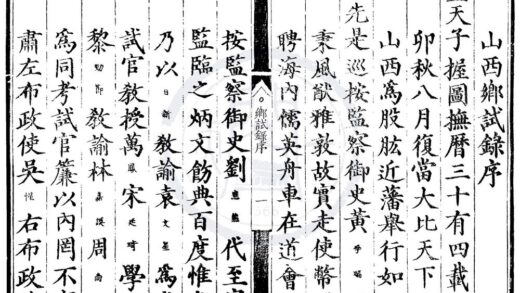 山西鄉試錄序
天子握圖撫曆三十有四載
卯秋八月復當大比天下
山西爲股肱近藩舉行如
先是巡按監察御史黃
秉風猷雅敦故實走使幣
聘海內儒英舟車在道會
鄉試錄序 一
按監察御史劉 代至
監臨之炳文飭典百度惟
乃以 教諭袁 爲
試官教授萬 鳳 宋 學
黎 教諭林 周 南
爲同考試官簾以內罔不
肅左布政使吳 右布政